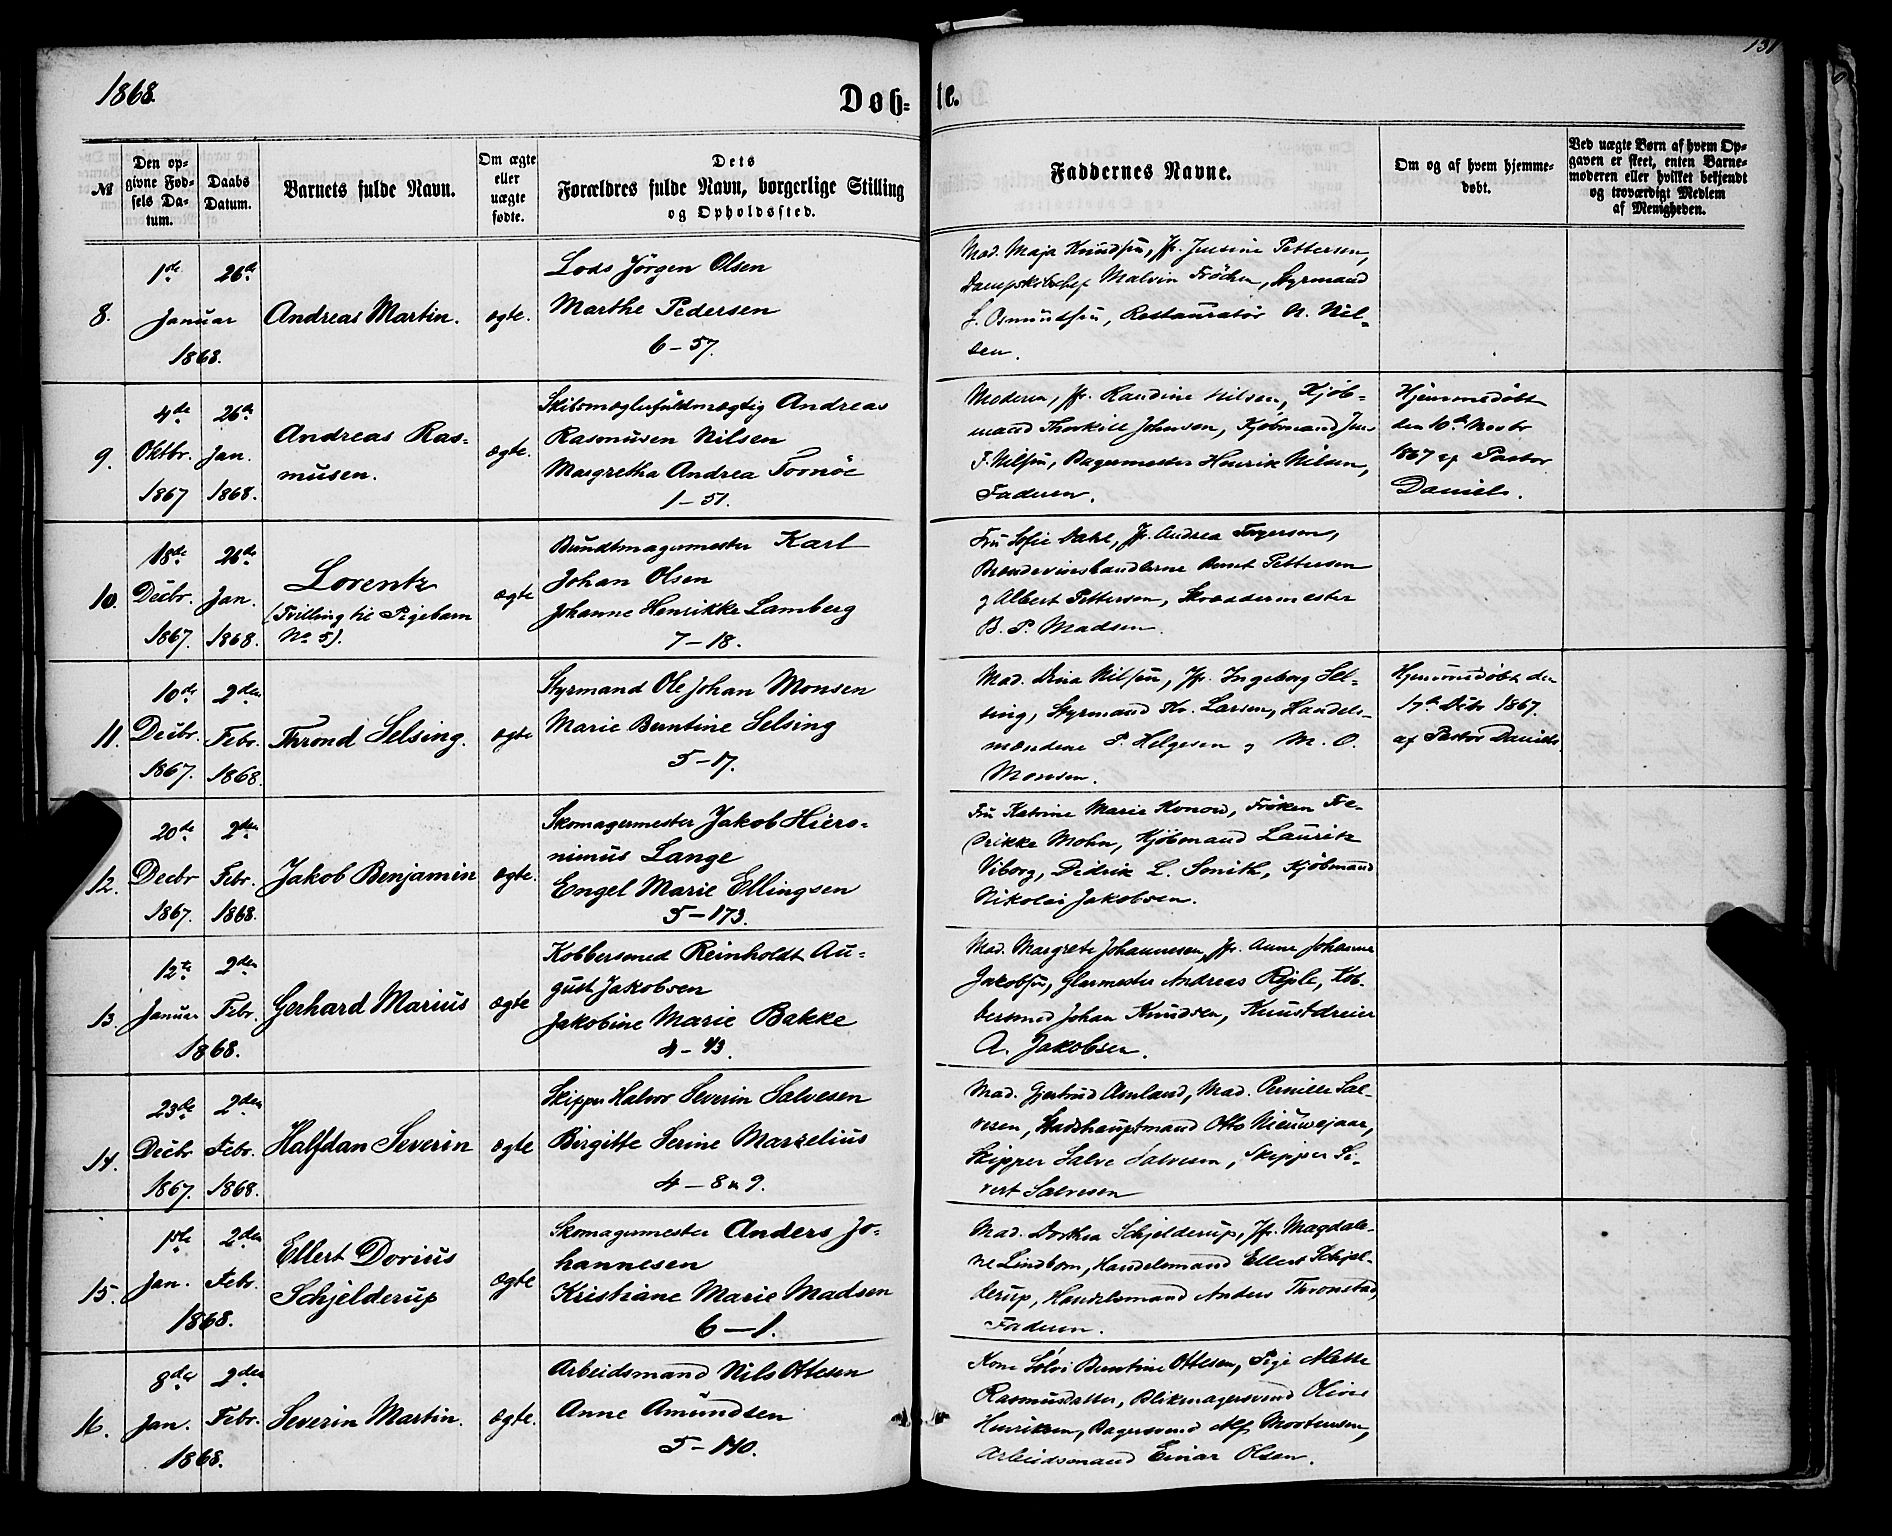 131
1868.
Døb-
te.
№
Den op-
givne Fød-
sels Da-
tum.
Daabs
Datum.
Barnets fulde Navn.
Om ægte
eller
uægte
fødte.
Dets
Forældres fulde Navn, borgerlige Stilling
og Opholdssted.
Faddernes Navne.
Om og af hvem hjemme-
døbt.
Ved uægte Børn af hvem Op-
gaven er skeet, enten Barne-
moderen eller hvilket bekjendt
og troværdigt Medlem
af Menigheden.
8.
1ste
Januar
1868.
26de
Andreas Martin.
ægte.
Lods Jörgen Olsen
Marthe Pedersen
6-57.
Mad. Maja Knudsen, Jfr. Justine Pettersen,
Dampskibschef Malvin Fröchen, Styrmand
Osmundsen, Restauratör N. Nil-
sen.
9.
4de
Oktbr.
1867
26de
Jan.
1868.
Andreas Ras-
musen.
ægte.
Skibsmæglerfuldmægtig Andreas
Rasmusen Nilsen
Margretha Andrea Tornöe
1-51.
Moderen, Jfr. Randine Nilsen, Kjöb-
mand Thorkill Johnsen, Kjöbmand Jens
J. Nilsen, Bagermester Henrik Nilsen,
Faderen.
Hjemmedöbt
den 10de Novbr
1867 af Pastor
Daniels.
10.
18de
Decbr.
1867.
26de
Jan.
1868.
Lorentz
(Tvilling til Pigebarn
No 5).
ægte
Bundtmagermester Karl
Johan Olsen
Johanne Henrikke Lamberg
7-18.
Fru Sofie Dahl, Jfr. Andrea Torgersen,
Brændevinshandlerne Bernt Pettersen
og Albert Pettersen, Skræddermester
B. P. Madsen.
11.
10de
Decbr.
1867.
2den
Febr.
1868.
Thrond Selsing.
ægte
Styrmand Ole Johan Monsen
Marie Berntine Selsing
5-17.
Mad. Dina Nilsen, Jfr. Ingeborg Sel-
sing, Styrmand Kr. Larsen, Handels-
mændene P. Helgesen og M. O.
Monsen.
Hjemmedöbt den
17de Decbr 1867.
af Pastor Daniels
12.
20de
Decbr
1867.
2den
Febr.
1868.
Jakob Benjamin
ægte.
Skomagermester Jakob Hiero-
nimus Lange
Engel Marie Ellingsen
5-173.
Fru Katrine Marie Konow, Fröken Fre-
drikke Mohn, Kjöbmand Lauritz
Viborg, Didrik L. Smith, Kjöbmand
Nikolai Jakobsen.
13
12te
Januar
1868.
2den
Febr.
Gerhard Marius
ægte
Kobbersmed Reinholdt Au-
gust Jakobsen
Jakobine Marie Bakke
4-43.
Mad. Margrete Johannesen, Jfr. Anne Johanne
Jakobsen, Glarmester Andreas, Kob-
bersmed Johan Knudsen, Kunstdreier
A. Jakobsen.
14.
23de
Decbr
1867.
2den
Febr.
1868.
Halfdan Severin
ægte
Skipper Halvor Severin Salvesen
Birgitte Serine Marselius
4-8 & 9.
Mad. Gjertrud Asmland, Mad. Pernille Sal-
vesen, Stadshauptmand Otto Nieuwejaar,
Skipper Salve Salvesen, Skipper Si-
vert Salvesen
15.
1ste
Jan.
1868.
2den
Febr.
Ellert Dorius
Schjelderup
ægte
Skomagermester Anders Jo-
hannesen
Kristiane Marie Madsen
6-1.
Mad. Dorthea Schjelderup, Jfr. Magdale-
ne Lindbom, Handelsmand Ellert Schjel-
derup, Handelsmand Anders Thronstad,
Faderen.
16.
8de
Jan.
1868.
2den
Febr.
Severin Martin.
ægte.
Arbeidsmand Nils Ottesen
Anne Amundsen
5-140.
Kone Sölvi Berntine Ottesen, Pige Mette
Rasmusdatter, Blikmagersvend Oliver
Henriksen, Bagersvend Alf Mortensen,
Arbeidsmand Einar Olsen.